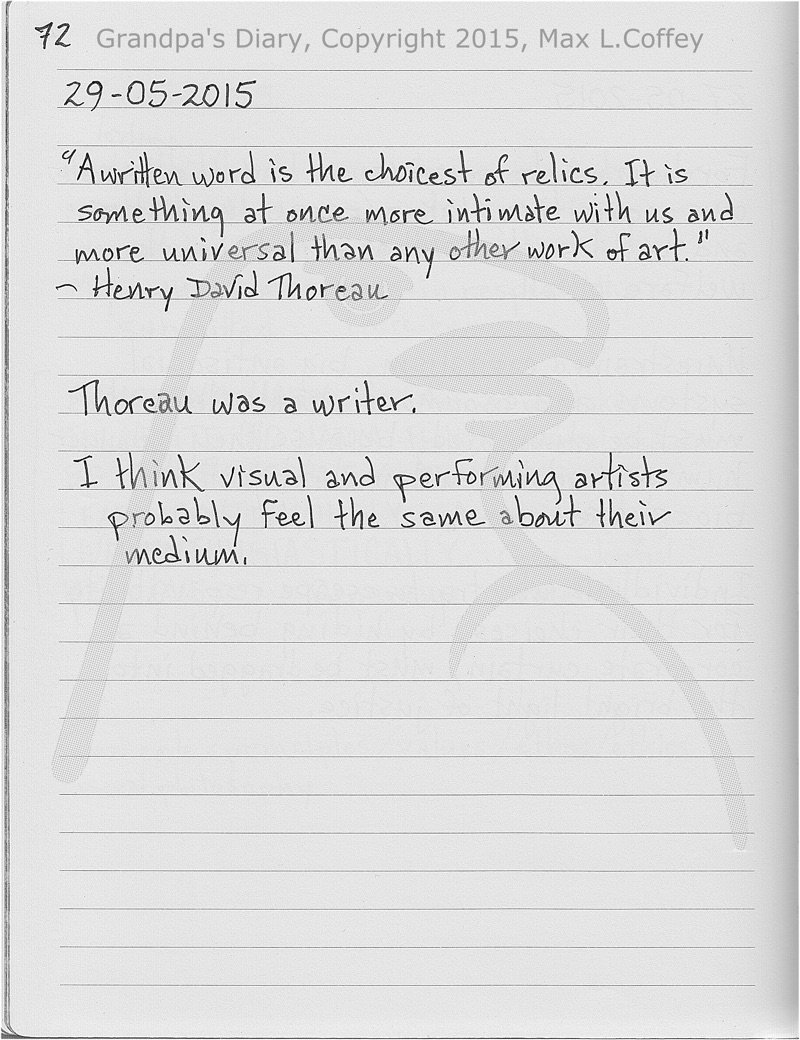 72 Grandpa's Diary, Copyright 2015, Max L.Coffey
29-05-2015
"A written word is the choicest of relics. It is
something at once more intimate with us and
more universal than any other work of art."
~ Henry David Thoreau
Thoreau was a writer.
I think visual and performing artists
probably feel the same about their
medium.